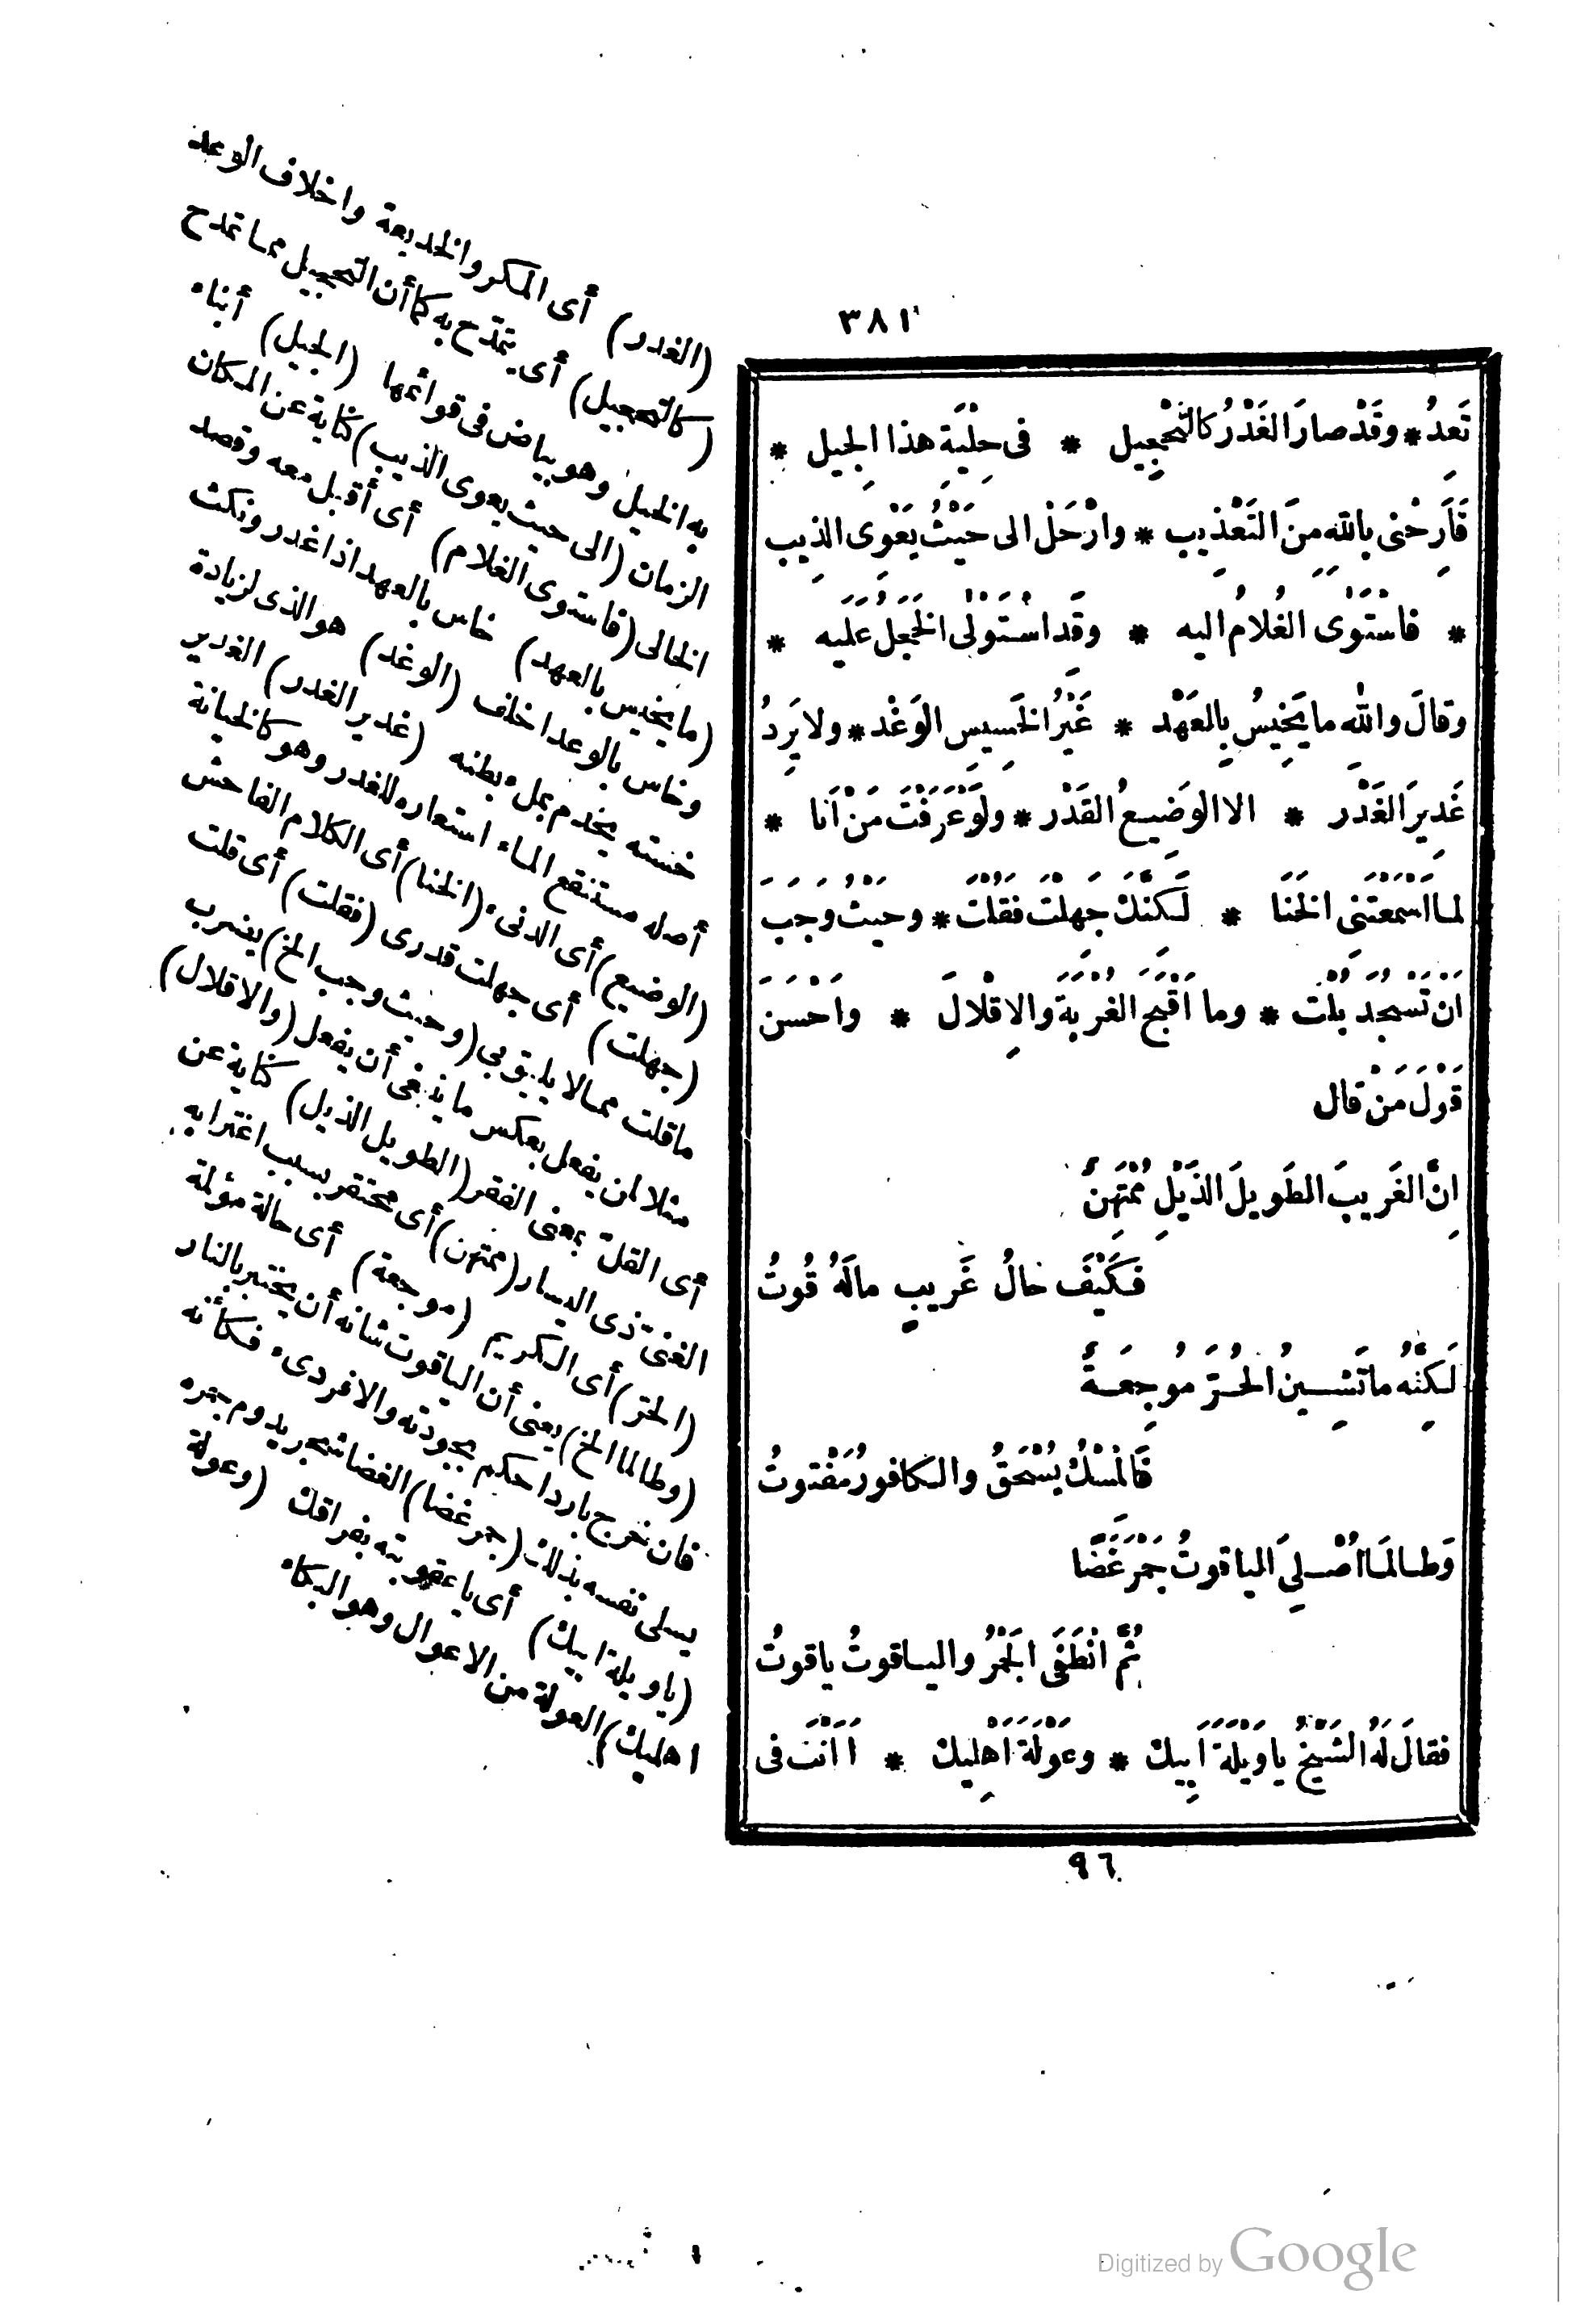 ٣٨١
تَعِدُ * وقَدْ صارَ الغَدْرُ كالتَّحْجِيل * فى حِلْيَةِ هذا الجِيل *
فَأَرِحْنى بالله مِنَ التَعْذِيب * وارْحَلْ الى حَيْثُ يَعْوِى الذِيب
* فاسْتَوْى الغُلامُ اليه * وقَدِ اسْتَوْلَى الخَجَلُ عَلَيه *
وقالَ والله ما يَخِيسُ بِالعَهْد * غَيْرُ الخَسِيسِ الوَغْد * ولا يَرِدُ
غَدِيرَ الغَدْر * الا الوَضِيعُ القَدْر * ولَوْ عَرَفْتَ مَنْ اَنا *
لما اَسْمَعْتَنِى الخَنَا * لَكِنَّكَ جَهِلْتَ فقُلْتَ * وحيثُ وجَبَ
اَنْ تَسْجُدَ بُلْتَ * وما اَقْبَحَ الغُرْبَةَ والاِقْلالَ * واَحْسَنَ
قَوْلَ مَنْ قال
اِنَّ الغَرِيبَ الطَوِيلَ الذَيْلِ مُمْتَهَنٌ
فَكَيْفَ حالُ غَرِيبٍ مالَهُ قُوتُ
لَكِنَّهُ ما تَشِينُ الحُرَّ مُوجِعَةٌ
فَالمِسْكُ يُسْحَقُ والكافورُ مَفْتوتُ
وَطالَما اُصْلِىَ الياقوتُ جَمْرَ غَضًا
ثُمَّ انْطَفَى الجَمْرُ والياقوتُ ياقوتُ
فقالَ لَهُ الشَيْخُ ياوَيْلَةَ اَبِيكَ * وعَوْلَةَ اَهْلِيكَ * اَ اَنْتَ فى
٩٦
(الغدر) أى المكر والخديعة واخلاف الوعد
(كالتحجيل) أى يتمدّح به كما أن التحجيل مما تمدح
به الخيل وهو بياض فى قوائمها (الجيل) أبناء
الزمان (الى حيث يعوى الذيب) كناية عن المكان
الخالى (فاستوى الغلام) أى أقبل معه وقصد
(ما يخيس بالعهد) خاس بالعهد اذا غدر ونكث
وخاس بالوعد اخلف (الوغد) هو الذى لزيادة
خسته يخدم بملء بطنه (غدير الغدر) الغدير
أصله مستنقع الماء استعاره للغدر وهو كالخيانة
(الوضيع) أى الدنىء (الخنا) أى الكلام الفاحش
(جهلت) أى جهلت قدرى (فقلت) أى قلت
ماقلت ممالا يليق بى (وحيث وجب الخ) يضرب
مثلا لمن يفعل بعكس ما ينبغى أن يفعل (والاقلال)
أى القلّ بمعنى الفقر (الطويل الذيل) كناية عن
الغنىّ ذى اليسار (ممتهن) أى محتقر بسبب اغترابه
(الحرّ) أى الكريم (موجعة) أى حالة مؤلمة
(وطالما الخ) يعنى أن الياقوت شانه أن يختبر بالنار
فان خرج باردا حكم بجودته والا فردىء فكأنه
يسلى نفسه بذلك (جمر غضا) الغضا شجر يدوم جمره
(ياويلة ابيك) أى ياعقوبته بفراقك (وعولة
اهليك) العولة من الاعوال وهو البكاء
Digitized by Google